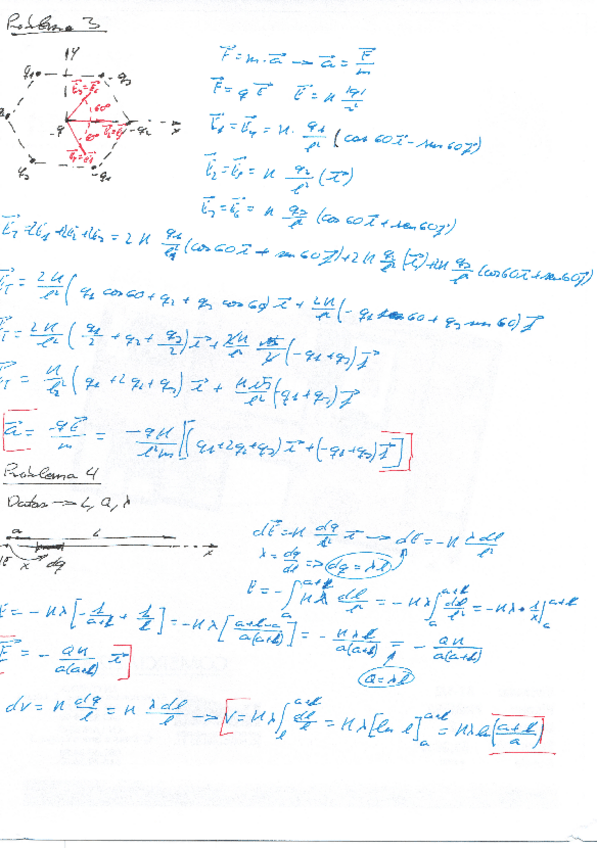 Problema 3
y
q₁ q₃
E⃗₃=E⃗₆
60°
-q E⃗₂=E⃗₅ -q₂ x
60°
q₃ -q₁
F⃗ = m·a⃗ → a⃗ = F⃗/m
F⃗ = q E⃗ E⃗ = K |q|/r²
E⃗₁ = E⃗₄ = K· q₁/l² (cos 60 i⃗ - sen 60 j⃗)
E⃗₂ = E⃗₅ = K q₂/l² (i⃗)
E⃗₃ = E⃗₆ = K q₃/l² (cos 60 i⃗ + sen 60 j⃗)
E⃗T = 2E⃗₁ + 2E⃗₂ + 2E⃗₃ = 2K q₁/l² (cos 60 i⃗ + sen 60 j⃗) + 2K q₂/l² (i⃗) + 2K q₃/l² (cos 60 i⃗ + sen 60 j⃗)
E⃗T = 2K/l² (q₁ cos 60 + q₂ + q₃ cos 60) i⃗ + 2K/l² (-q₁ sen 60 + q₃ sen 60) j⃗
E⃗T = 2K/l² (q₁/2 + q₂ + q₃/2) i⃗ + 2K/l² √3/2 (-q₁ + q₃) j⃗
E⃗T = K/l² (q₁ + 2q₂ + q₃) i⃗ + K√3/l² (-q₁ + q₃) j⃗
a⃗ = -qE⃗/m = -qK/l²m [(q₁ + 2q₂ + q₃) i⃗ + (-q₁ + q₃) j⃗]
Problema 4
Datos → L, Q, λ
a L
x dq x
dE⃗ = -K dq/l² i⃗ → dE = -K λdl/l²
λ = dq/dl ⇒ dq = λl
E = -∫ₐᵃ⁺ᴸ Kλ dl/l² = -Kλ ∫ₐᵃ⁺ᴸ dl/l² = -Kλ · 1/x |ₐᵃ⁺ᴸ
E = -Kλ [-1/(a+L) + 1/L] = -Kλ [(a+L-a)/a(a+L)] = -KλL/a(a+L) = -QK/a(a+L)
E⃗ = -QK/a(a+L) i⃗
Q = λL
dV = K dq/l = K λdl/l → V = Kλ ∫ₗᵃ⁺ᴸ dl/l = Kλ [ln l]ₐᵃ⁺ᴸ = Kλ ln((a+L)/a)